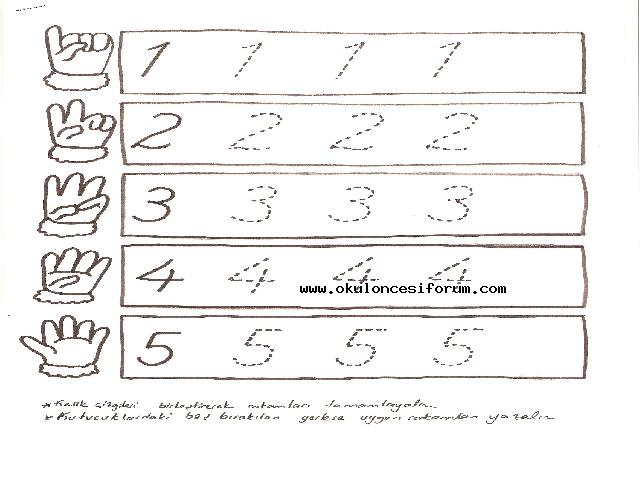 1 1 1 1
2 2 2 2
3 3 3 3
4 4 4 4
www.okuloncesiforum.com
5 5 5 5
*Kesik çizgileri birleştirerek rakamları tamamlayalım.
*Kutucuklardaki boş bırakılan yerlere uygun rakamları yazalım.